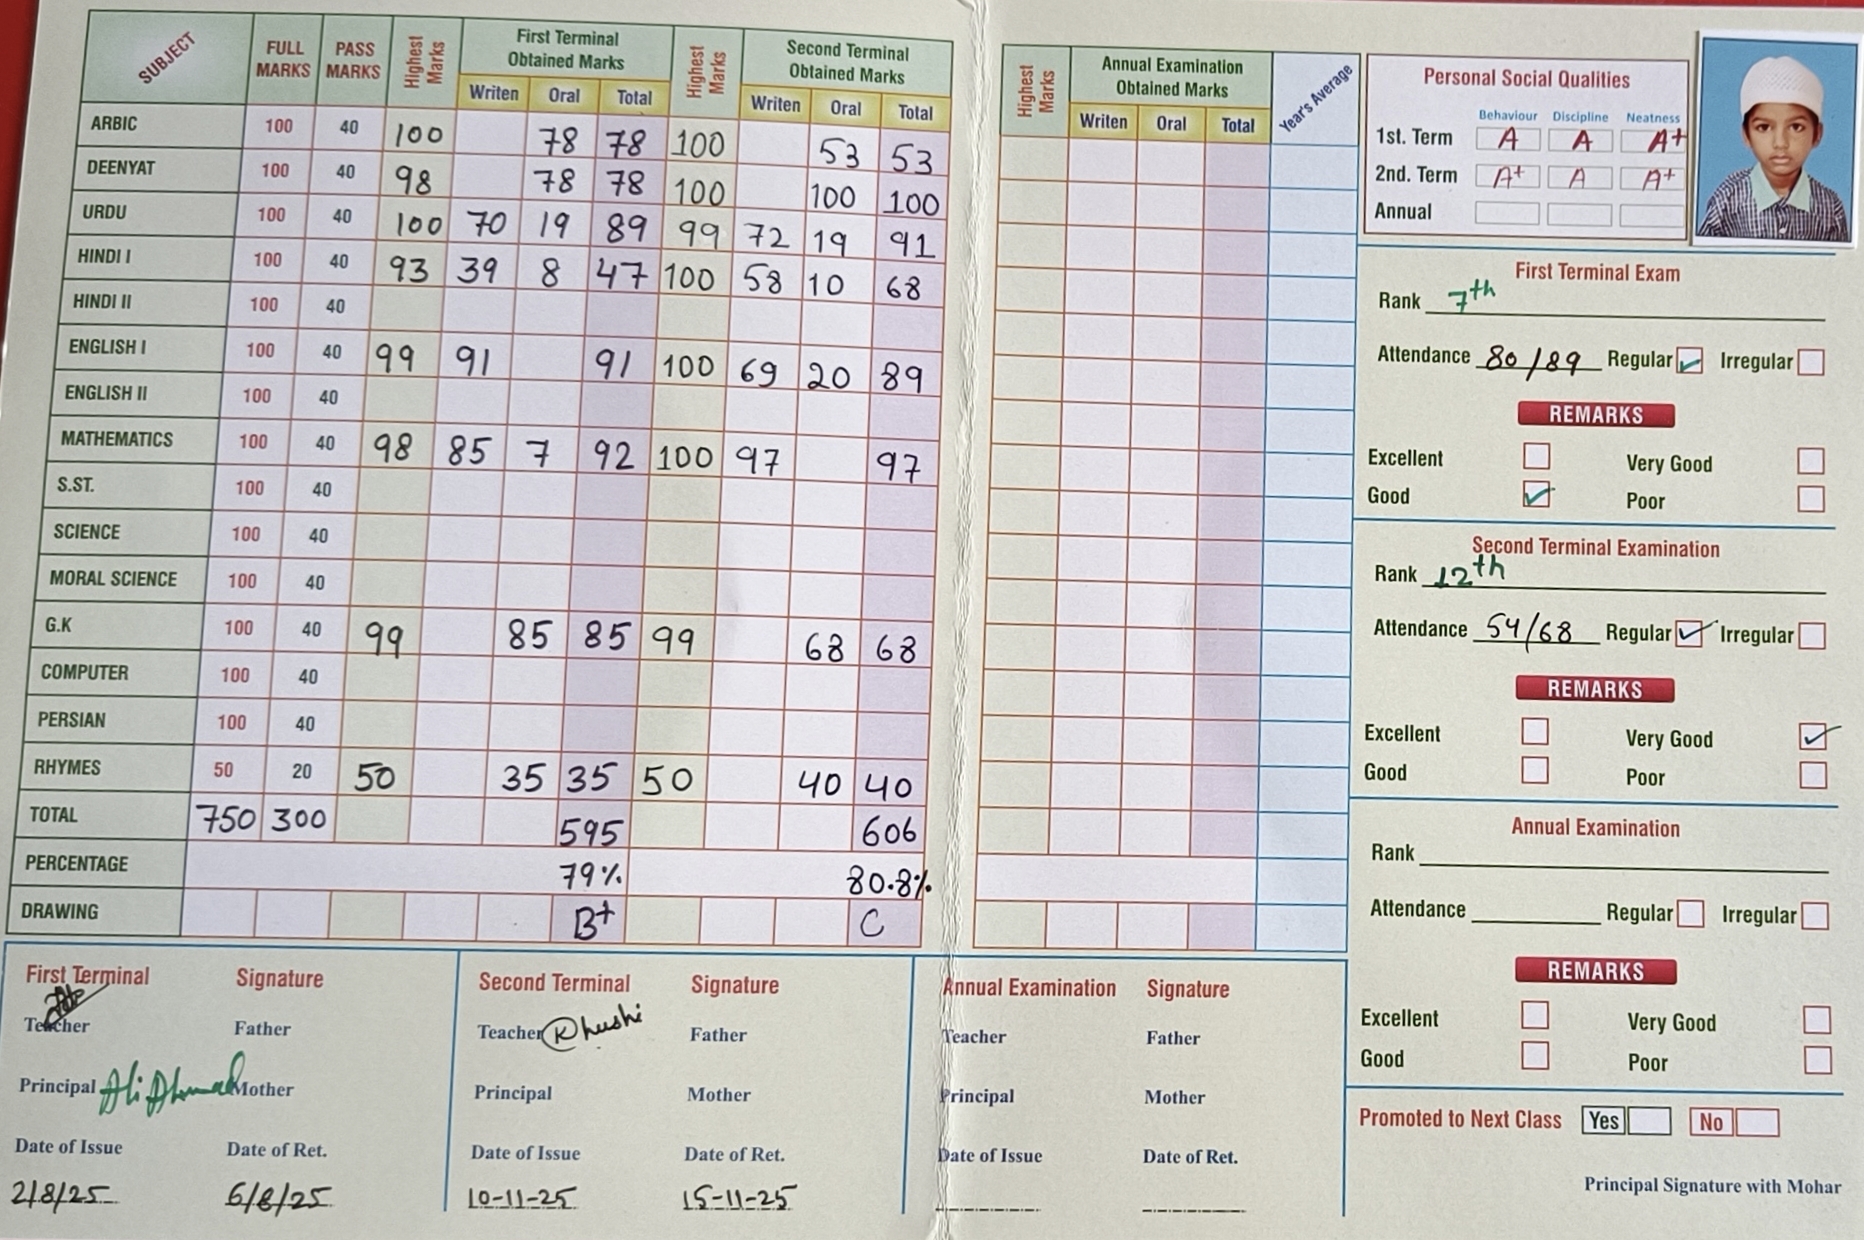 SUBJECT FULL MARKS PASS MARKS Highest Marks First Terminal Obtained Marks Highest Marks Second Terminal Obtained Marks
Writen Oral Total Writen Oral Total
ARBIC 100 40 100 78 78 100 53 53
DEENYAT 100 40 98 78 78 100 100 100
URDU 100 40 100 70 19 89 99 72 19 91
HINDI I 100 40 93 39 8 47 100 58 10 68
HINDI II 100 40
ENGLISH I 100 40 99 91 91 100 69 20 89
ENGLISH II 100 40
MATHEMATICS 100 40 98 85 7 92 100 97 97
S.ST. 100 40
SCIENCE 100 40
MORAL SCIENCE 100 40
G.K 100 40 99 85 85 99 68 68
COMPUTER 100 40
PERSIAN 100 40
RHYMES 50 20 50 35 35 50 40 40
TOTAL 750 300 595 606
PERCENTAGE 79% 80.8%
DRAWING B+ C
Highest Marks Annual Examination Obtained Marks Year's Average
Writen Oral Total
Personal Social Qualities
Behaviour Discipline Neatness
1st. Term A A A+
2nd. Term A+ A A+
Annual
First Terminal Exam
Rank 7th
Attendance 80/89 Regular Irregular
REMARKS
Excellent Very Good
Good Poor
Second Terminal Examination
Rank 12th
Attendance 54/68 Regular Irregular
REMARKS
Excellent Very Good
Good Poor
Annual Examination
Rank
Attendance Regular Irregular
REMARKS
Excellent Very Good
Good Poor
Promoted to Next Class Yes No
Principal Signature with Mohar
First Terminal Signature
Teacher Father
Principal Ali Ahmad Mother
Date of Issue Date of Ret.
2/8/25 6/8/25
Second Terminal Signature
Teacher Khushi Father
Principal Mother
Date of Issue Date of Ret.
10-11-25 15-11-25
Annual Examination Signature
Teacher Father
Principal Mother
Date of Issue Date of Ret.